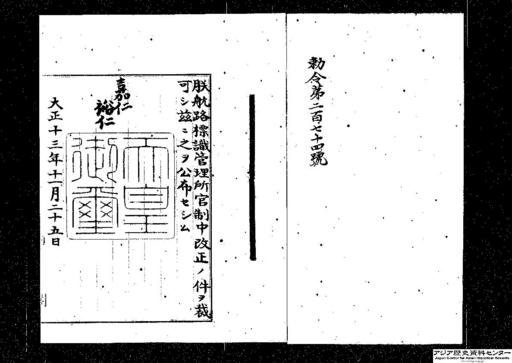 勅令第二百七十四號
朕航路標識管理所官制中改正ノ件ヲ裁
可シ茲ニ之ヲ公布セシム
嘉仁
裕仁
天皇
御璽
大正十三年十一月二十五日
アジア歴史資料センター
Japan Center for Asian Historical Records